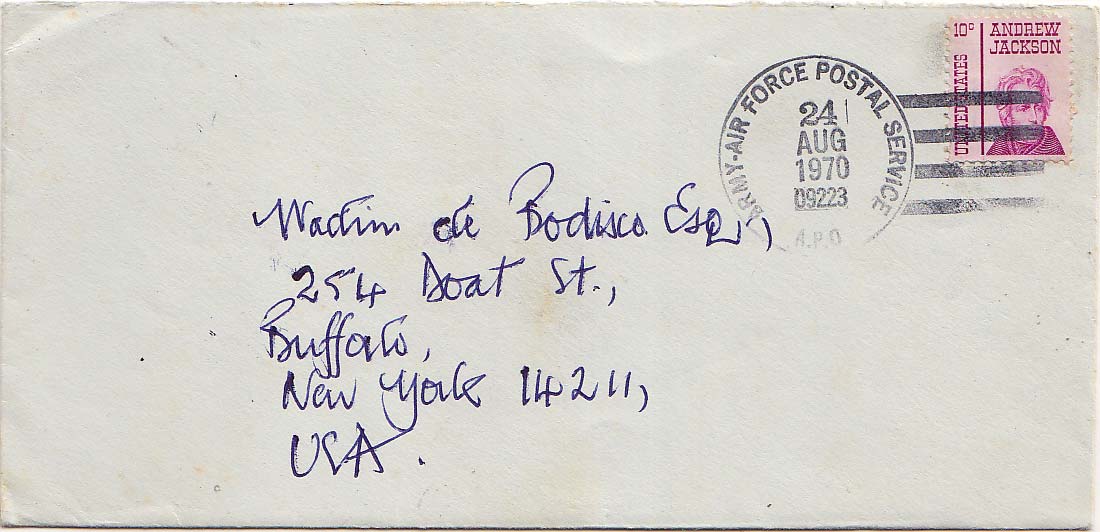 10c
ANDREW
JACKSON
UNITED STATES
ARMY-AIR FORCE POSTAL SERVICE
24
AUG
1970
09223
A.P.O
Wadim de Bodisco Esq.,
254 Doat St.,
Buffalo,
New York 14211,
USA.